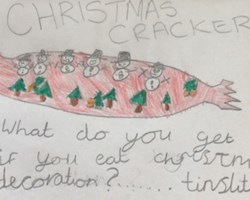 CHRISTMAS
CRACKER
What do you get
if you eat christm
decoration?...... tinslit